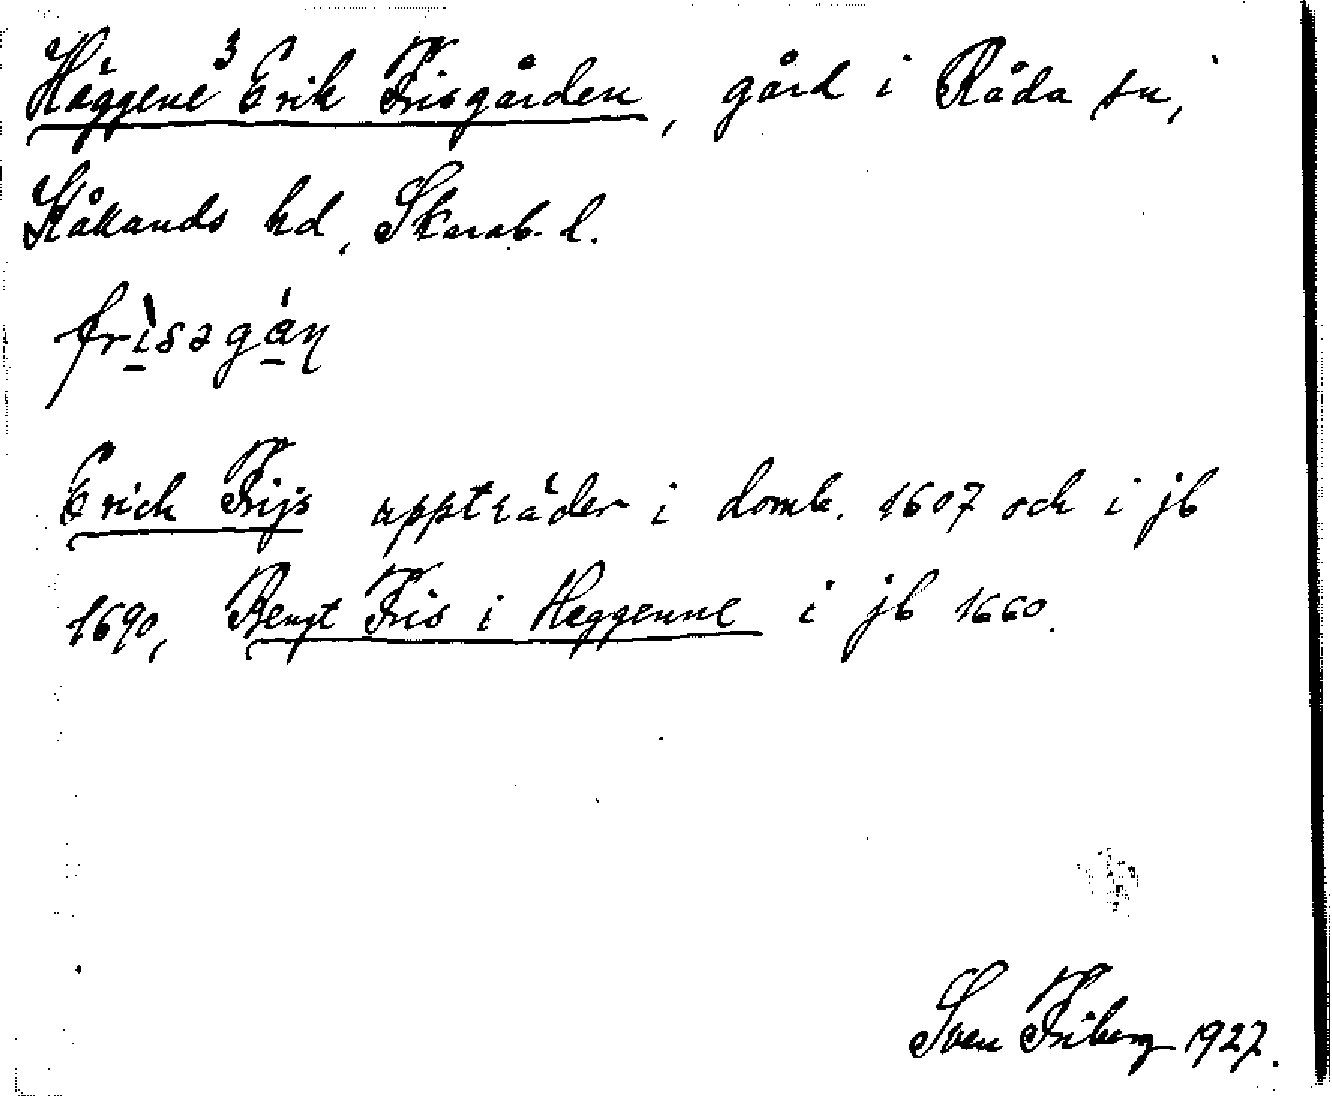 Häggene³ Erik Frisgården, gård i Råda sn,
Kållands hd, Skarab. l.
frìsəgán
Erick Frijs uppträder i domb. 1607 och i jb
1690, Bengt Fris i Heggenne i jb 1660.
Sven Friberg 1927.